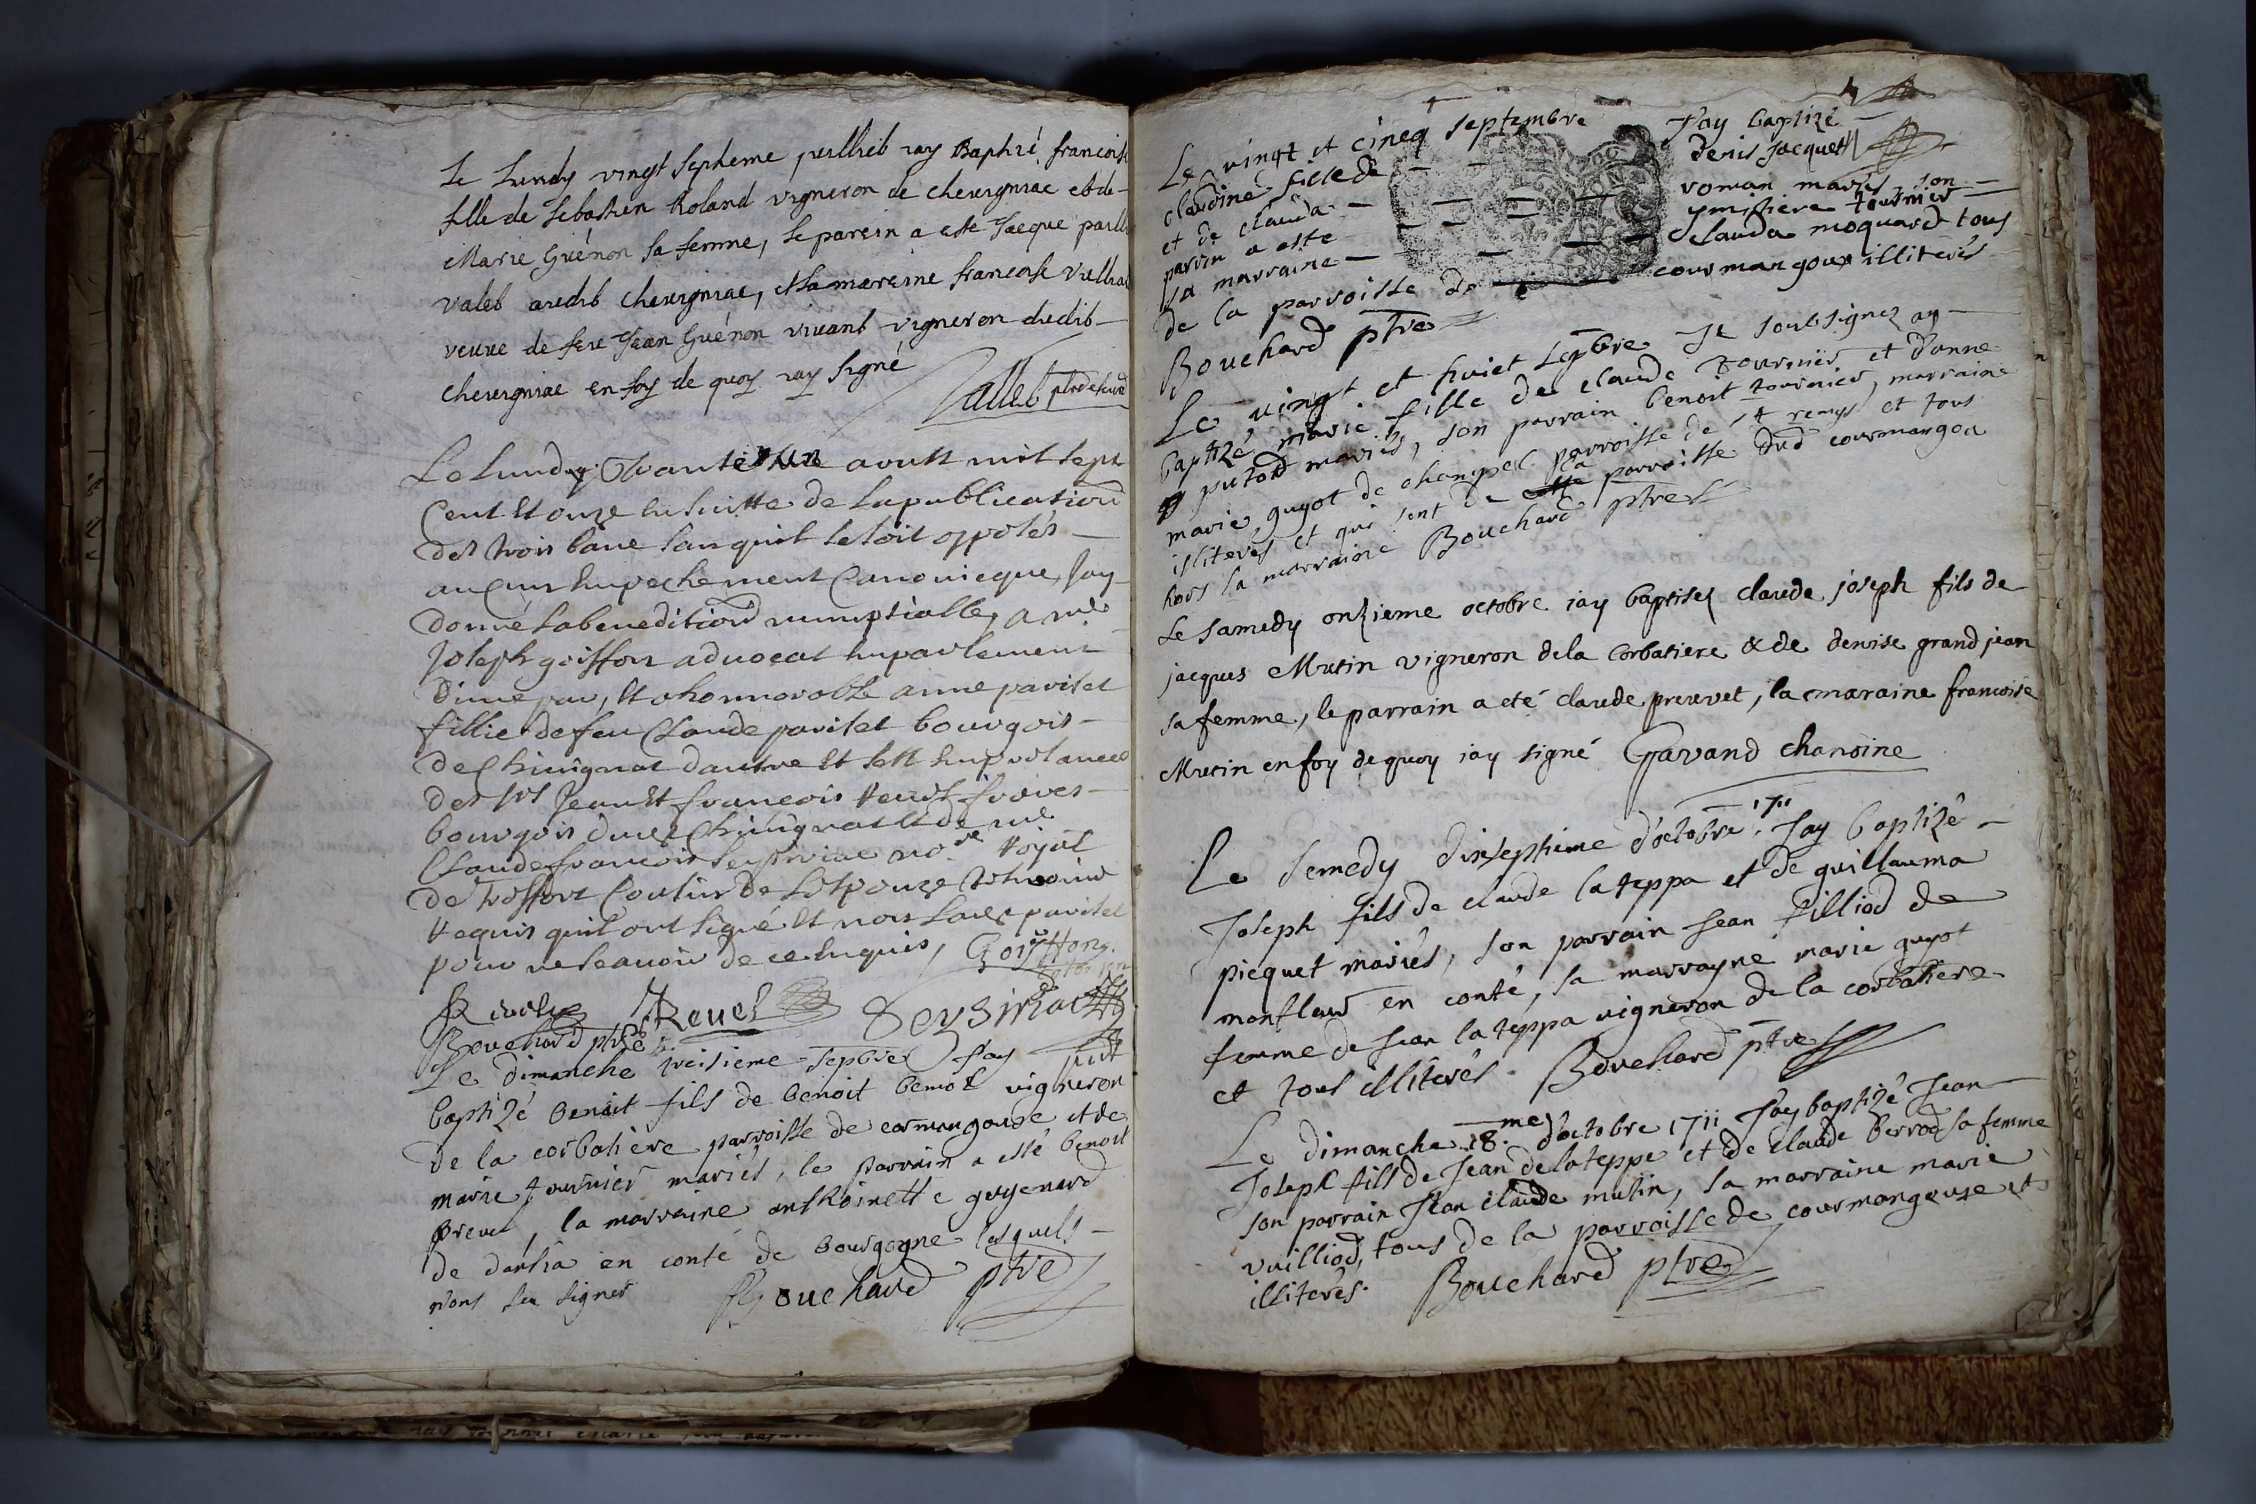 Le Lundy vingt septieme juillet jay Baptizé francoise
fille de Sebastien Roland vigneron de chevigniac et de
Marie Guénon sa femme, le parein a esté Jacque
valet audit chevigniac, et la mareine francoise
veuve de feu Jean Guénon vivant vigneron dudit
chevigniac en foy de quoy jay signé
Vallet
Le lundy trante une aoust mil sept
cent et onze en suitte de la publication
des trois bans sans quil se soit opposés
aucuns empechement canonicque, jay
donné la benediction nuuptialle, a me
Joseph goiffon advocat en parlement
d'une par, et a honnorable anne pavitet
fillie de feu Claude pavitet bourgois
de d'autre et se en
des srs Jean et francois frores
bourgois
Claude francois Seyssiriac
de Coulin de Lespouze
requis quil ont signé et non lad pavitet
pour ne scavoir de ce enquis, Goiffon
Revel Seysiriat
Bouchard ptre
Le dimanche treisieme septbre J'ay
baptizé benoit fils de benoit vigneron
de la corbatière parroisse de cormangouse et de
marie tournier mariés, le parrain a esté benoit
prevet, la marraine anthoinette guyenard
de en conté de bourgogne lesquels
n'ont seu signer Bouchard ptre
Le vingt et cincq septembre J'ay baptizé
claudine fille de denis Jacquet
et de clauda roman mariés, son
parrin a esté ymifiere tournier
sa marraine clauda moquard tous
de la parroisse de courmangoux illiterés
Bouchard ptre
Le vingt et huict sepbre Je soubsignez ay
baptizé marie fille de claude tournier et d'anne
putod mariés, son parrain benoit tournier, marraine
marie guyot de parroisse de st remy et tous
illiterés et qui sont de la parroisse dud courmangou
hors la marraine Bouchard ptre
Le samedy onzieme octobre iay baptisez claude joseph fils de
jacques Mutin vigneron de la Corbatiere & de denise grand jean
sa femme, le parrain a eté claude prevvet, la maraine francoise
Mutin en foy de quoy iay signé Gavand chanoine
Le Semedy dixseptieme d'octobre 1711 J'ay baptizé
Joseph fils de claude lateppa et de guillauma
picquet mariés, son parrain Jean filliod de
monflaur en conté, sa marrayne marie guyot
femme de Jean lateppa vigneron de la corbatiere
et tous illiterés. Bouchard ptre
Le dimanche 18.me d'octobre 1711 J'ay baptizé Jean
Joseph fils de Jean de lateppe et de claude berrod sa femme
son parrain Jean claude mutin, sa marraine marie
vuilliod, tous de la parroisse de courmangouse et
illiterés. Bouchard ptre